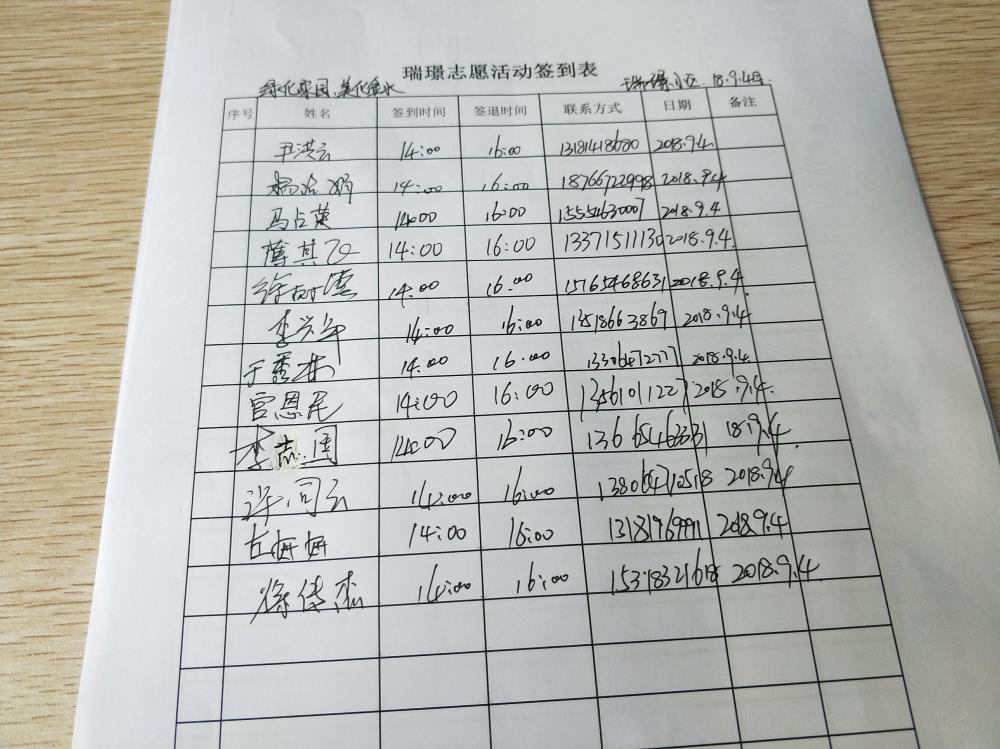 瑞璟志愿活动签到表
绿化家园、美化 水 瑞璟小区. 18.9.4号
序号 姓名 签到时间 签退时间 联系方式 日期 备注
尹洪云 14:00 16:00 13181418680 2018.9.4
14:00 16:00 18766722998 2018.9.4
马占英 14:00 16:00 15554630007 2018.9.4
薄其 14:00 16:00 13371511130 2018.9.4.
许树 14:00 16:00 15765468631 2018.9.4
李兴年 14:00 16:00 13518663869 2018.9.4
于秀 14:00 16:00 13306472777 2018.9.4
宫恩 14:00 16:00 13561011227 2018.9.4.
李志国 14:00 16:00 18.9.4
许同云 14:00 16:00 138064710518 2018.9.4
古妍妍 14:00 16:00 13181969991 2018.9.4
徐传 14:00 16:00 15318321618 2018.9.4